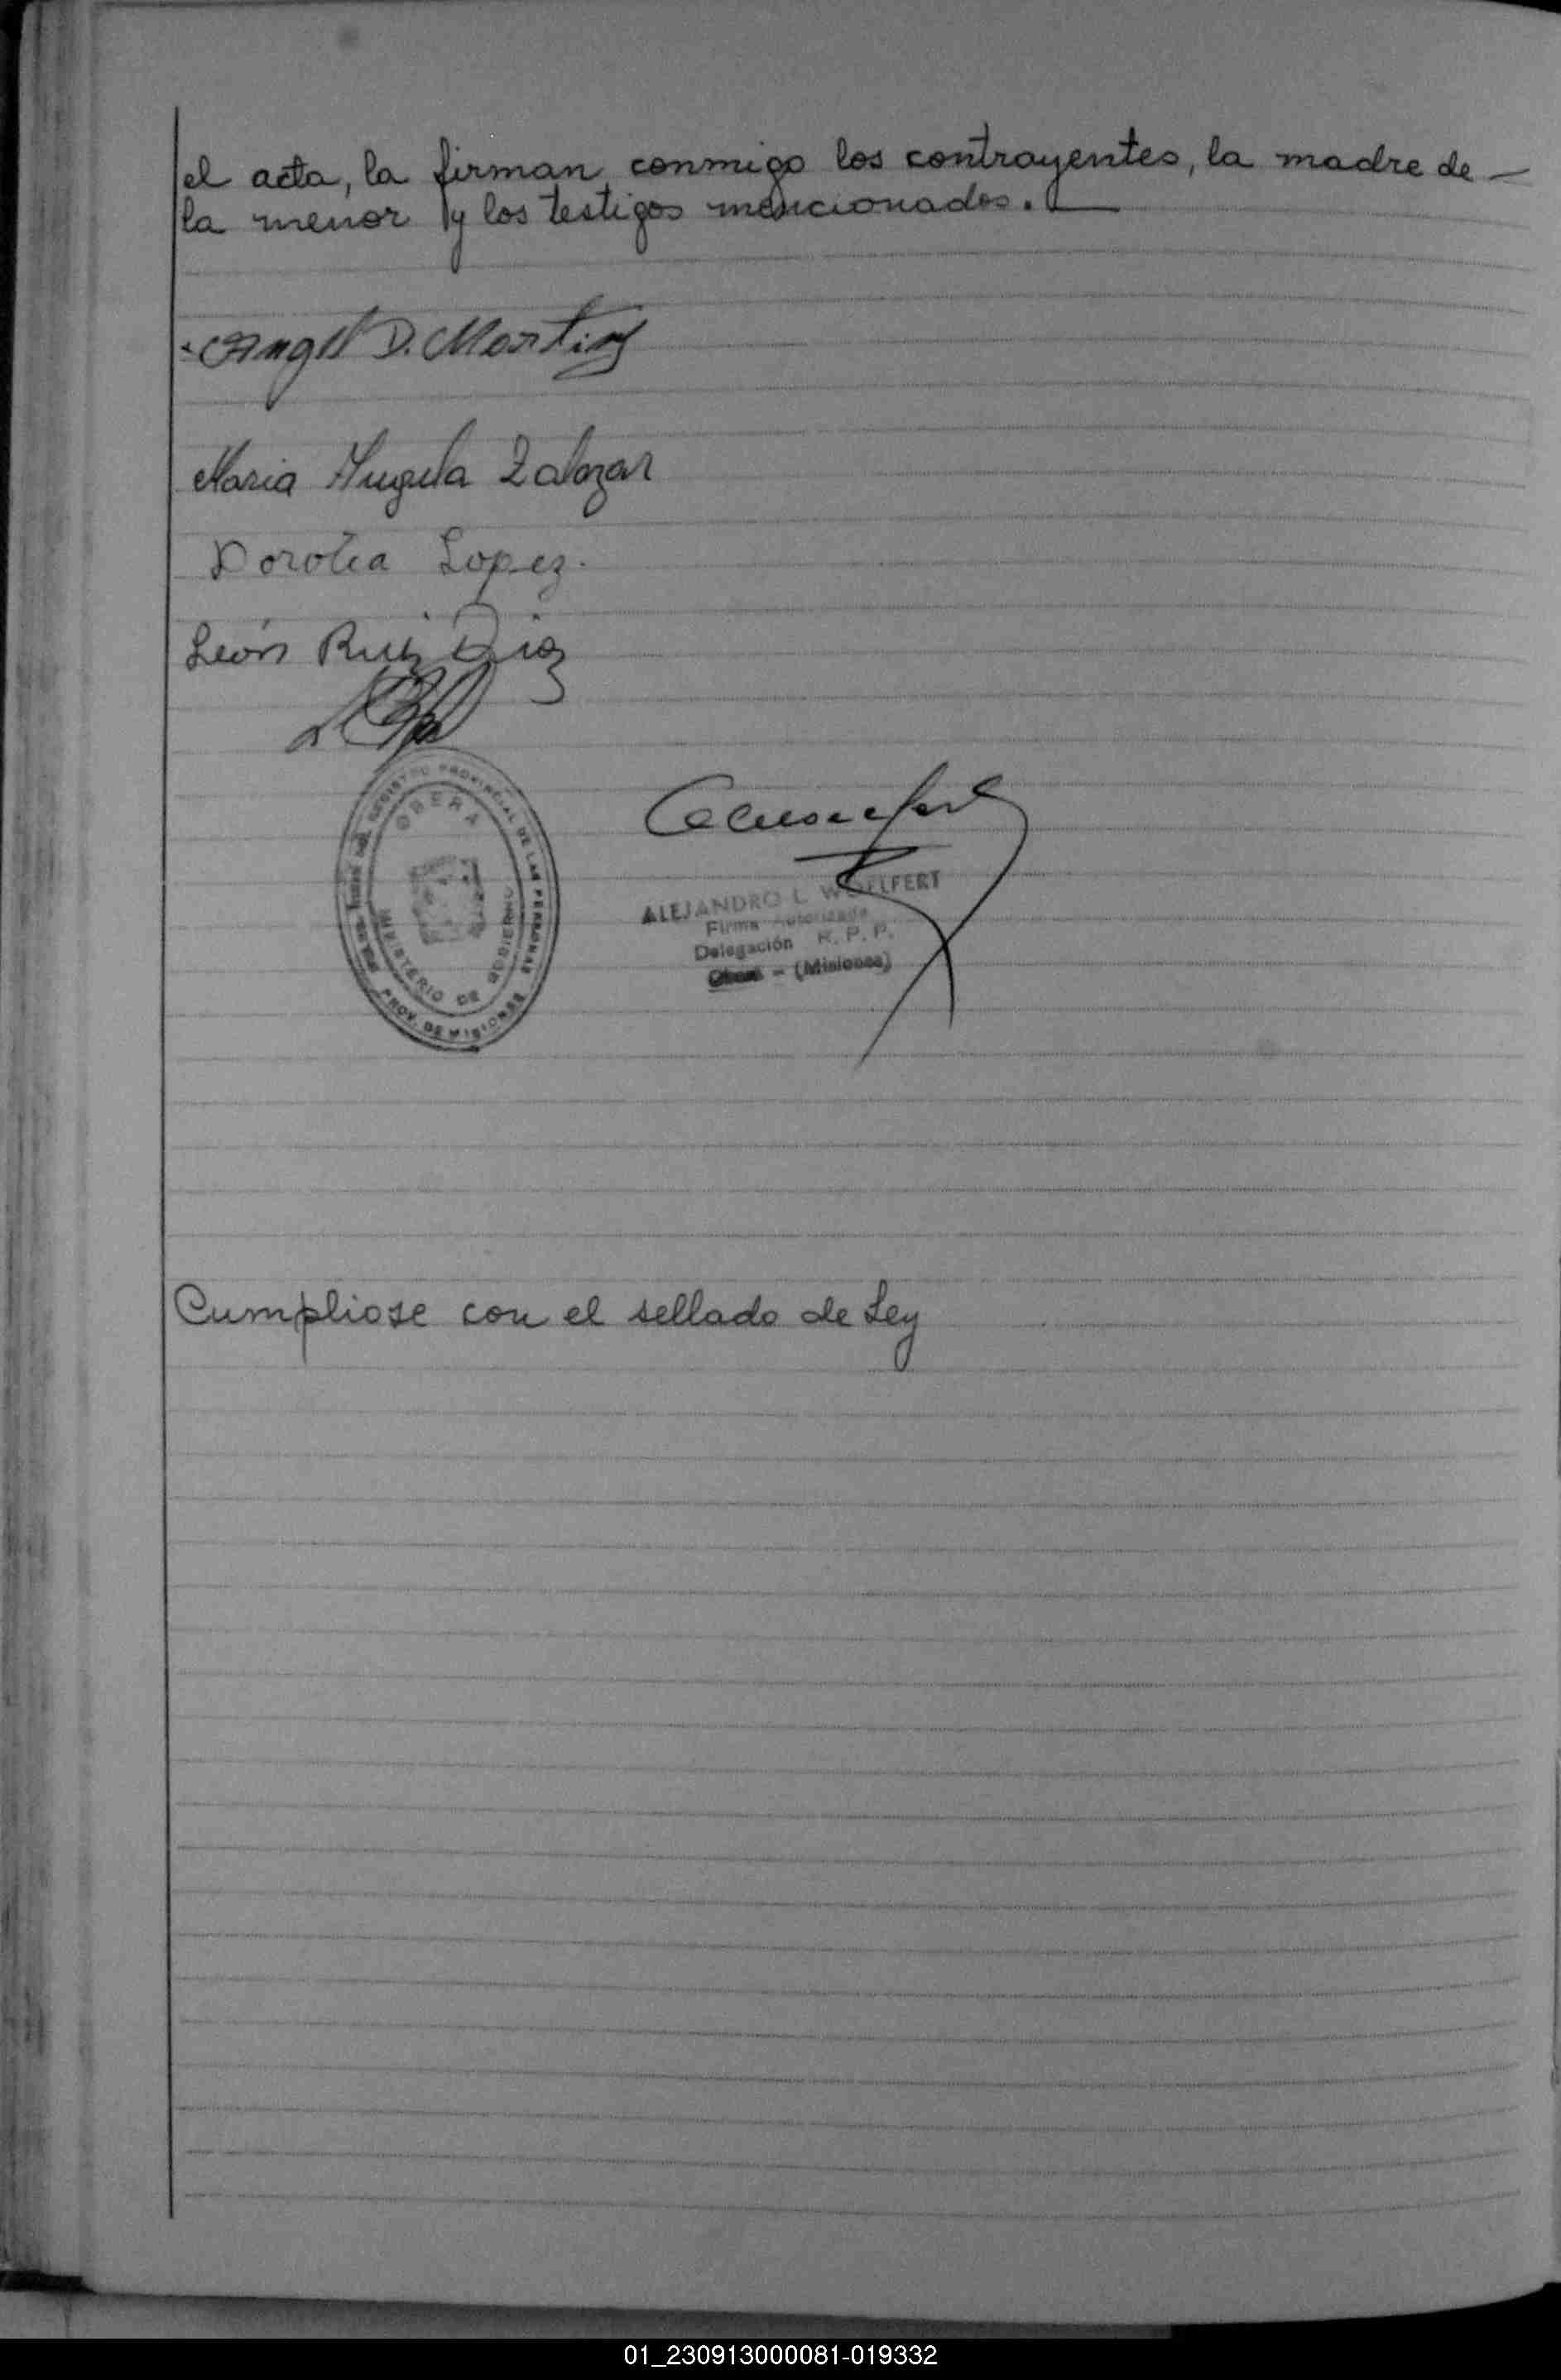 el acta, la firman conmigo los contrayentes, la madre de
la menor y los testigos mencionados.
Angel D. Martinz
Maria Zalazar
Dorotea Lopez.
León Ruiz Diaz
REGISTRO PROVINCIAL DE LAS PERSONAS
OBERA
MINISTERIO DE GOBIERNO
PROV. DE MISIONES
ALEJANDRO L. WOELFERT
Firma Autorizada
Delegación R. P. P.
Oberá - (Misiones)
Cumpliose con el sellado de Ley
01_230913000081-019332